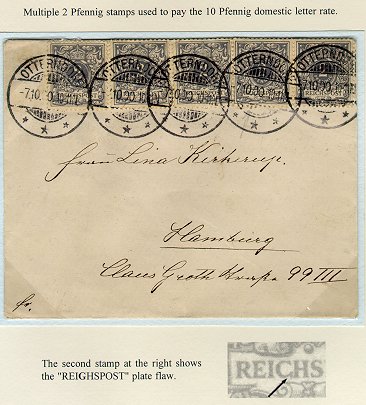 Multiple 2 Pfennig stamps used to pay the 10 Pfennig domestic letter rate.
OTTERNDORF OTTERNDORF OTTERNDORF OTTERNDORF OTTERNDORF
REICHSPOST
Frau Lina Kirkerup.
Hamburg
Claus Groth Straße 99 III
fr.
The second stamp at the right shows
the "REIGHSPOST" plate flaw.
REICHS